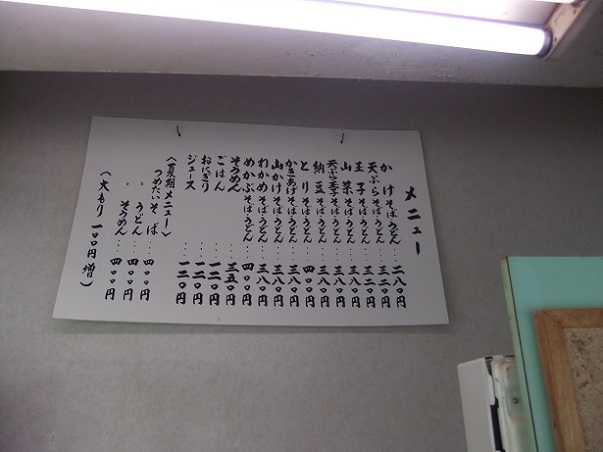 メニュー
かけそば・うどん…二八〇円
天ぷらそば・うどん…三二〇円
玉子そば・うどん…三二〇円
山菜そば・うどん…三八〇円
天ぷら玉子そば・うどん…三八〇円
納豆そば・うどん…三八〇円
とりそば・うどん…四〇〇円
かきあげそば・うどん…三八〇円
山かけそば・うどん…三八〇円
わかめそば・うどん…三八〇円
めかぶそば・うどん…四〇〇円
そうめん…三五〇円
ごはん…一二〇円
おにぎり…一二〇円
ジュース…一二〇円
〈夏期メニュー〉
つめたいそば…四〇〇円
〃 うどん…四〇〇円
〃 そうめん…四〇〇円
(大もり一〇〇円増)